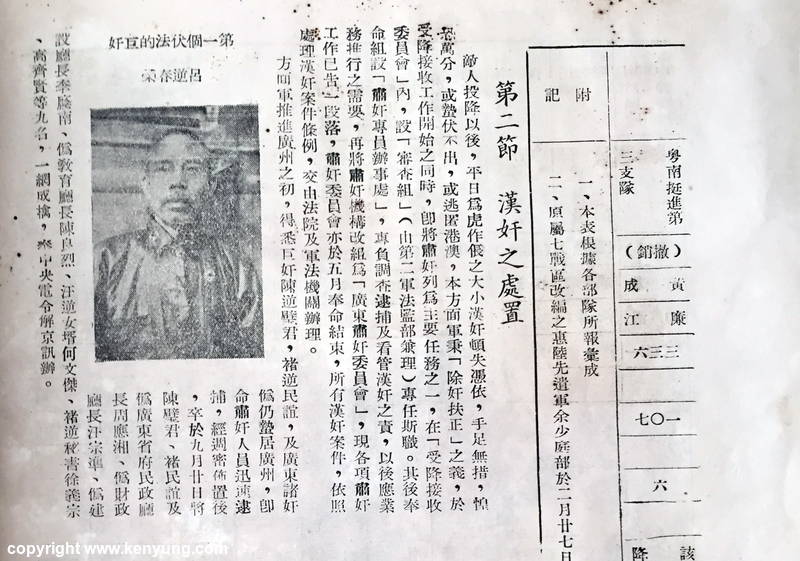 粵南挺進第
三支隊
(撤銷)
黃成
廉江
六三三
七〇一
六
該
降
附記
一、本表根據各部隊所報彙成
二、原屬七戰區改編之惠陸先遣軍余少庭部於二月廿七日
第二節 漢奸之處置
敵人投降以後，平日爲虎作倀之大小漢奸頓失憑依，手足無措，惶
恐萬分，或蟄伏不出，或逃匿港澳，本方面軍秉「除奸扶正」之義，於
受降接收工作開始之同時，卽將肅奸列爲主要任務之一，在「受降接收
委員會」內，設「審查組」（由第二軍法監部兼理）專任斯職。其後奉
命組設「肅奸專員辦事處」，專負調查逮捕及看管漢奸之責，以後應業
務推行之需要，再將肅奸機構改組爲「廣東肅奸委員會」，現各項肅奸
工作已告一段落，肅奸委員會亦於五月奉命結束，所有漢奸案件，依照
處理漢奸案件條例，交由法院及軍法機關辦理。
方面軍推進廣州之初，得悉巨奸陳逆璧君，褚逆民誼，及廣東諸奸
僞仍蟄居廣州，卽
命肅奸人員迅速逮
捕，經週密佈置後
，卒於九月廿日將
陳璧君、褚民誼及
僞廣東省府民政廳
長周應湘、僞財政
廳長汪宗準、僞建
設廳長李蔭南、僞教育廳長陳良烈、汪逆女壻何文傑、褚逆秘書徐義宗
、高齊賢等九名，一網成擒，奉中央電令解京訊辦。
第一個伏法的巨奸
呂逆春榮
copyright www.kenyung.com